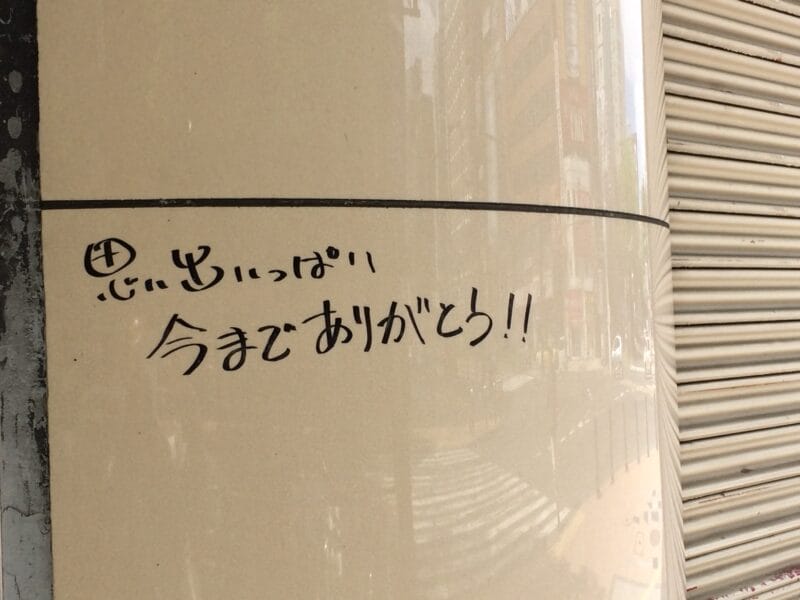 思い出いっぱい
今までありがとう!!